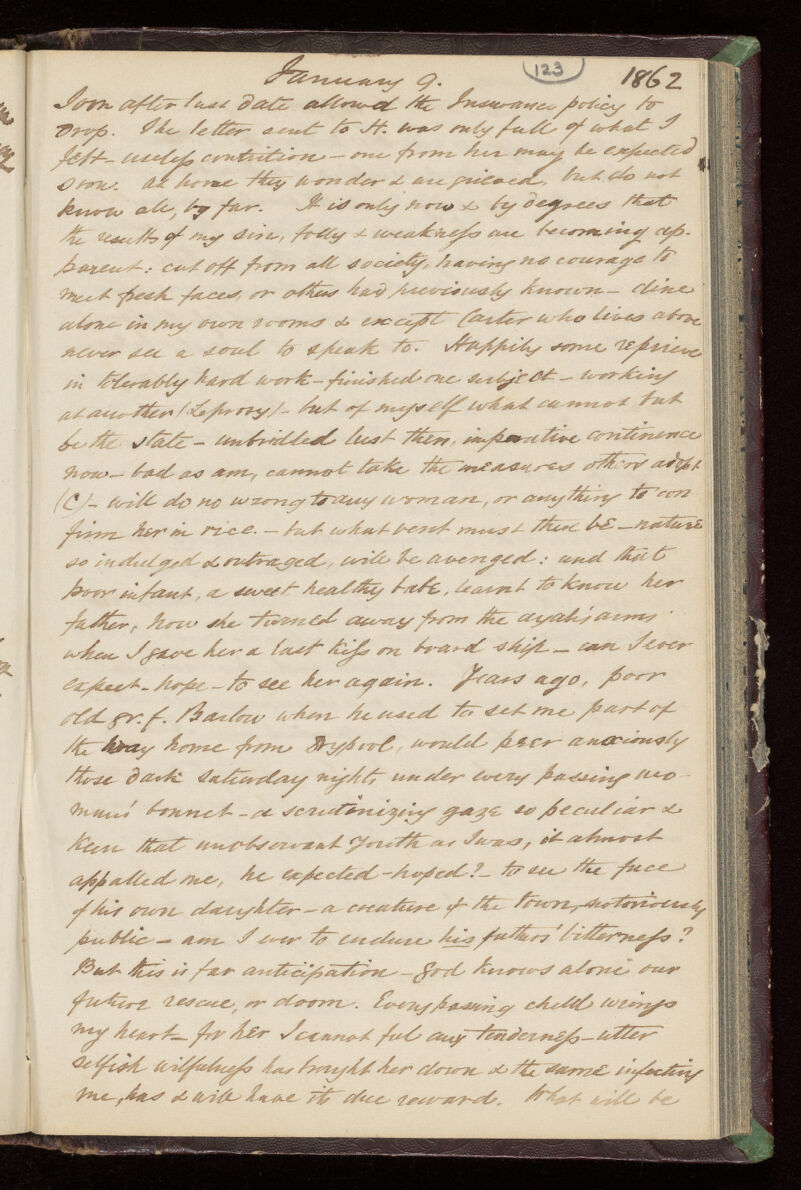 January 9.
123
1862
Soon after last date allowed the Insurance policy to
drop. The letter sent to H. was only full of what I
felt – useless contrition – one from her may be expected
soon. At home they wonder & are grieved, but do not
know all, by far. It is only now & by degrees that
the results of my sin, folly & weakness are becoming ap-
parent: cut off from all society, having no courage to
meet fresh faces, or others had previously known – dine
alone in my own rooms & except Carter who lives above
never see a soul to speak to. Happily some reprieve
in tolerably hard work – finished one subject – working
at another (Leprosy) – but of myself what cannot but
be the state – unbridled lust then, imperative continence
now – bad as am, cannot take the measures others adopt
(C) – will do no wrong to any woman, or anything to con
firm her in vice. – but what vent must there be – nature
so indulged & outraged, will be avenged: and that
poor infant, a sweet healthy babe, learnt to know her
father, how she turned away from the ayah's arms
when I gave her a last kiss on board ship – can I ever
expect – hope – to see her again. Years ago, poor
old gr. f. Barlow when he used to set me part of
the way home from Drypool, would peer anxiously
those dark Saturday nights under every passing wo-
man's bonnet – a scrutinizing gaze so peculiar &
keen that unobservant youth as I was, it almost
appalled me, he expected – hoped? – to see the face
of his own daughter – a creature of the town, notoriously
public – am I ever to endure his fathers' bitterness?
But this is far anticipation – God knows alone our
future rescue, or doom. Every passing child wrings
my heart – for her I cannot feel any tenderness – utter
selfish wilfulness has brought her down & the same infecting
me, has & will have its due reward. What will be